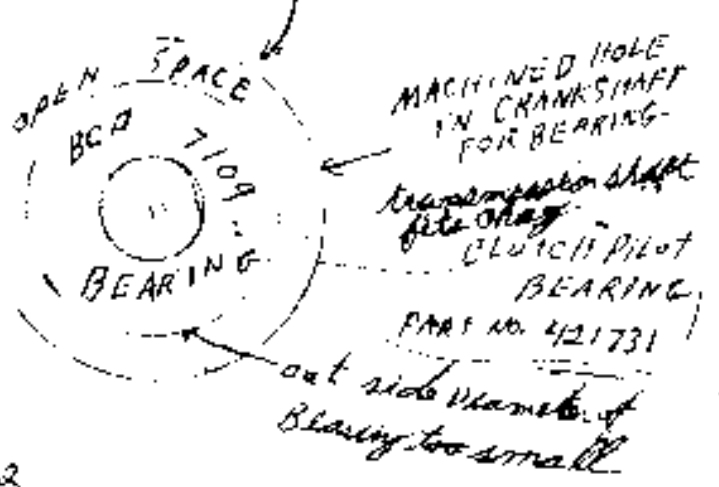 OPEN SPACE
BCA 7109
BEARING
MACHINED HOLE
IN CRANKSHAFT
FOR BEARING
transmission shaft
fits okay
CLUTCH PILOT
BEARING
PART NO. 421731
out side Diameter of
Bearing too small
2